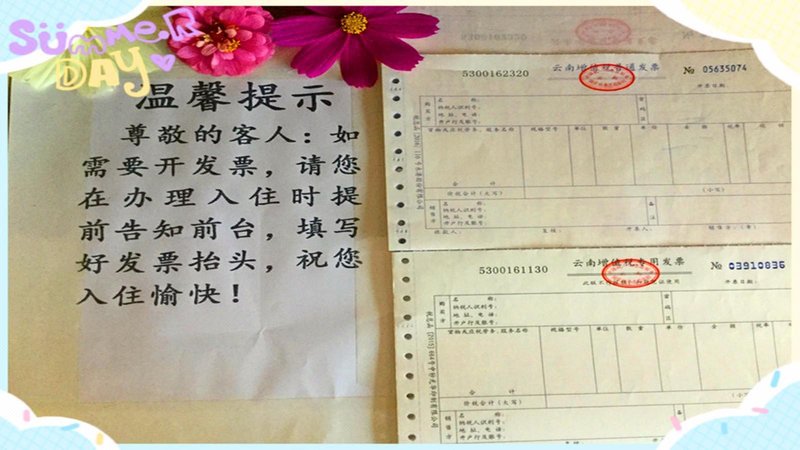 SUMMER
DAY
温馨提示
尊敬的客人：如
需要开发票，请您
在办理入住时提
前告知前台，填写
好发票抬头，祝您
入住愉快！
5300162320
云南增值税普通发票
№ 05635074
开票日期：
购买方
名　称：
纳税人识别号：
地址、电话：
开户行及账号：
货物或应税劳务、服务名称
规格型号
单位
数量
单价
金额
税率
合　计
价税合计（大写）
（小写）
销售方
名　称：
纳税人识别号：
地址、电话：
开户行及账号：
备注
收款人：
复核：
开票人：
5300161130
云南增值税专用发票
№ 03910836
开票日期：
购买方
名　称：
纳税人识别号：
地址、电话：
开户行及账号：
货物或应税劳务、服务名称
规格型号
单位
数量
单价
金额
税率
合　计
价税合计（大写）
（小写）
名　称：
纳税人识别号：
地址、电话：
开户行及账号：